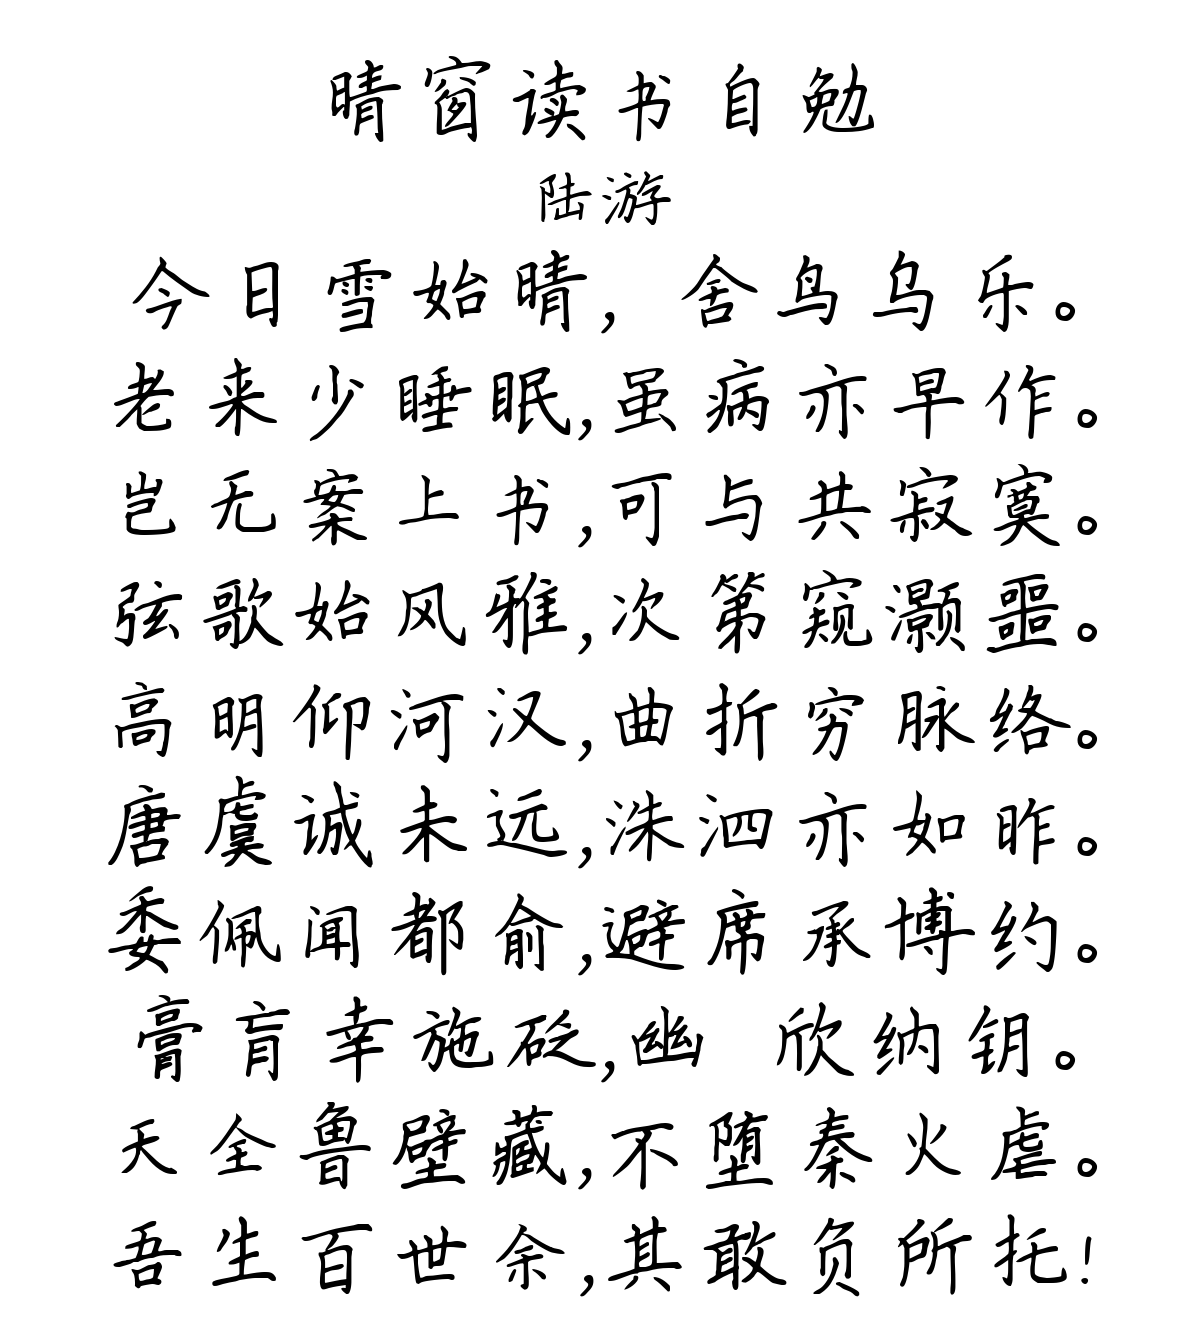 晴窗读书自勉
陆游
今日雪始晴，舍鸟乌乐。
老来少睡眠,虽病亦早作。
岂无案上书,可与共寂寞。
弦歌始风雅,次第窥灏噩。
高明仰河汉,曲折穷脉络。
唐虞诚未远,洙泗亦如昨。
委佩闻都俞,避席承博约。
膏肓幸施砭,幽 欣纳钥。
天全鲁壁藏,不堕秦火虐。
吾生百世余,其敢负所托!